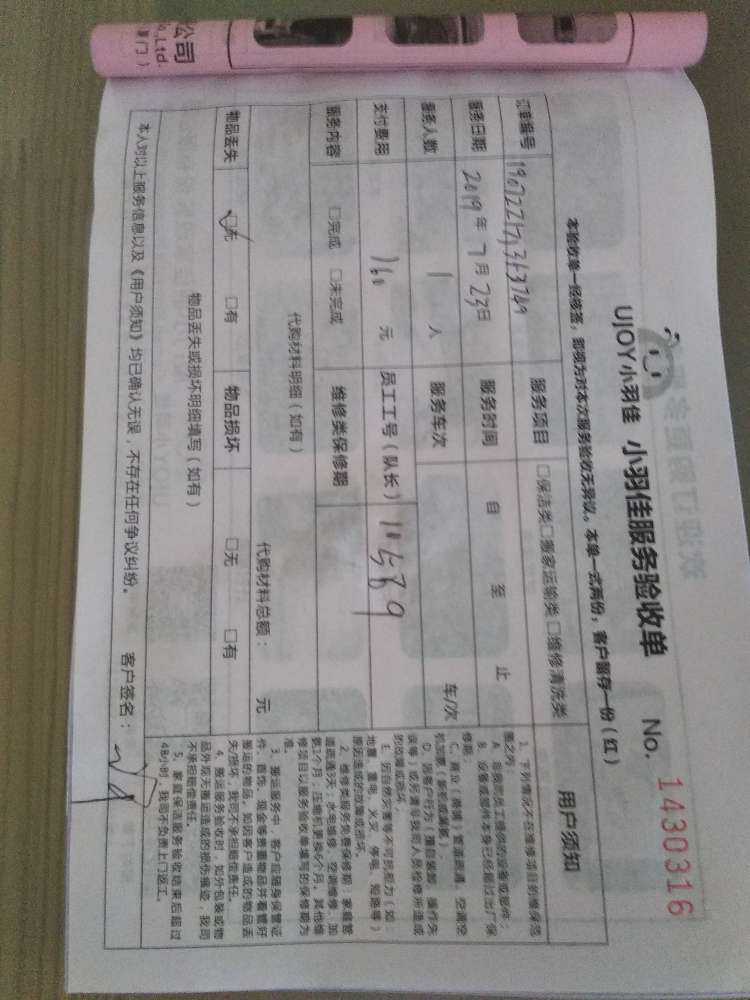 公司
Co.,Ltd.
厦门）
UJOY小羽佳 小羽佳服务验收单 No. 1430316
本验收单一经修签，即视为对本次服务验收无异议。本单一式两份，客户留存一份（红）
订单编号
服务项目 □保洁类□搬家运输类 □维修清洗类
服务日期 2019年7月23日 服务时间 自 至 止
服务人数 1 人 服务车次 车/次
支付费用 160 元 员工工号（队长） 11589
服务内容 □完成 □未完成 维修类保修期
代购材料明细（如有） 代购材料总额： 元
物品丢失 □无 □有 物品损坏 □无 □有
物品丢失或损坏明细填写（如有）
本人对以上服务信息以及《用户须知》均已确认无误，不存在任何争议纠纷。 客户签名：
用户须知
1、下列情况不在维修项目的维保范
围之内：
A、非我司员工提供的设备或部件；
B、设备或部件本身已经超过出厂保
修期；
C、商业（商铺）管道疏通、空调空
D、因客户行为（擅自拆卸、操作失
误等）或另请非我司人员检修所造成
的故障或损坏；
E、因自然灾害等不可抗拒力（如：
地震、雷电、火灾、停电、短路等）
原因造成的故障或损坏。
2、维修类服务免费保修期：家庭管
道疏通3天，水电维修、空调维修、加
氨1个月；压缩机更换6个月，其他维
修项目以服务验收单填写的保修期为
准。
3、搬运服务中，客户应随身保管证
件、首饰、现金等贵重物品并看管好
搬运的物品。如因客户造成的物品丢
失/损坏，我司不承担赔偿责任。
4、搬运服务验收时，如外包装或物
品外观无搬运造成的损伤痕迹，我司
不承担赔偿责任。
5、家庭保洁服务验收结束后超过
48小时，我司不负责上门返工。